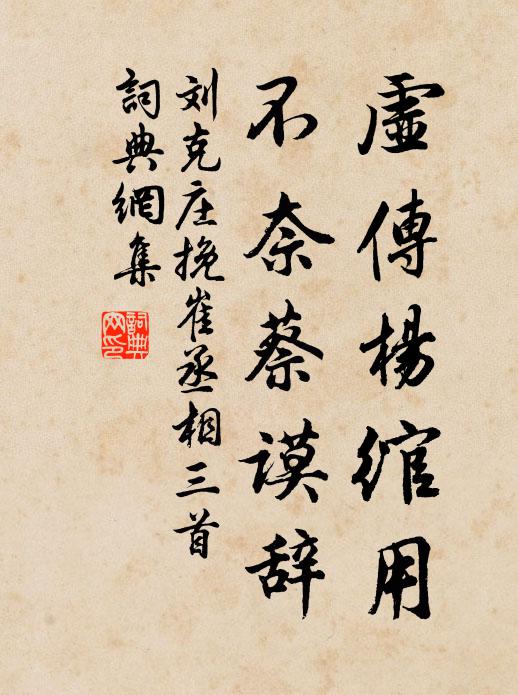 虛傳楊綰用
不奈蔡谟辞
刘克庄挽崔丞相三首
詞典網集
詞典網印